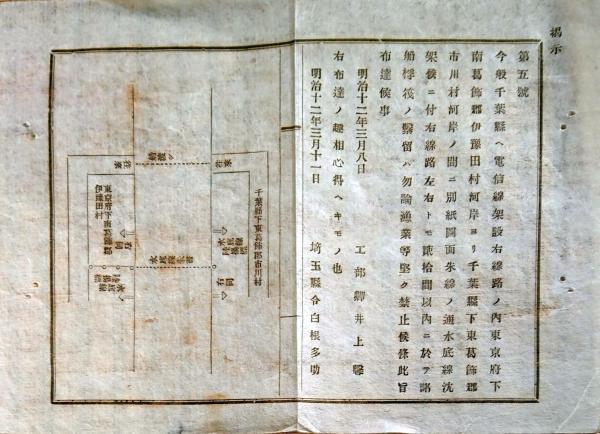 掲示
第五號
今般千葉縣ヘ電信線架設右線路ノ內東京府下
南葛飾郡伊豫田村河岸ヨリ千葉縣下東葛飾郡
市川村河岸ノ間ニ別紙圖面朱線ノ通水底線沈
架候ニ付右線路左右トモ貳拾間以內ニ於テ諸
船桴筏ノ繋留ハ勿論漁業等堅ク禁止候條此旨
布達候事
明治十二年三月八日
工部卿井上馨
右布達ノ趣相心得ヘキモノ也
明治十二年三月十一日
埼玉縣令白根多助
千葉縣下東葛飾郡市川村
水底線
東京府下
伊豫田村